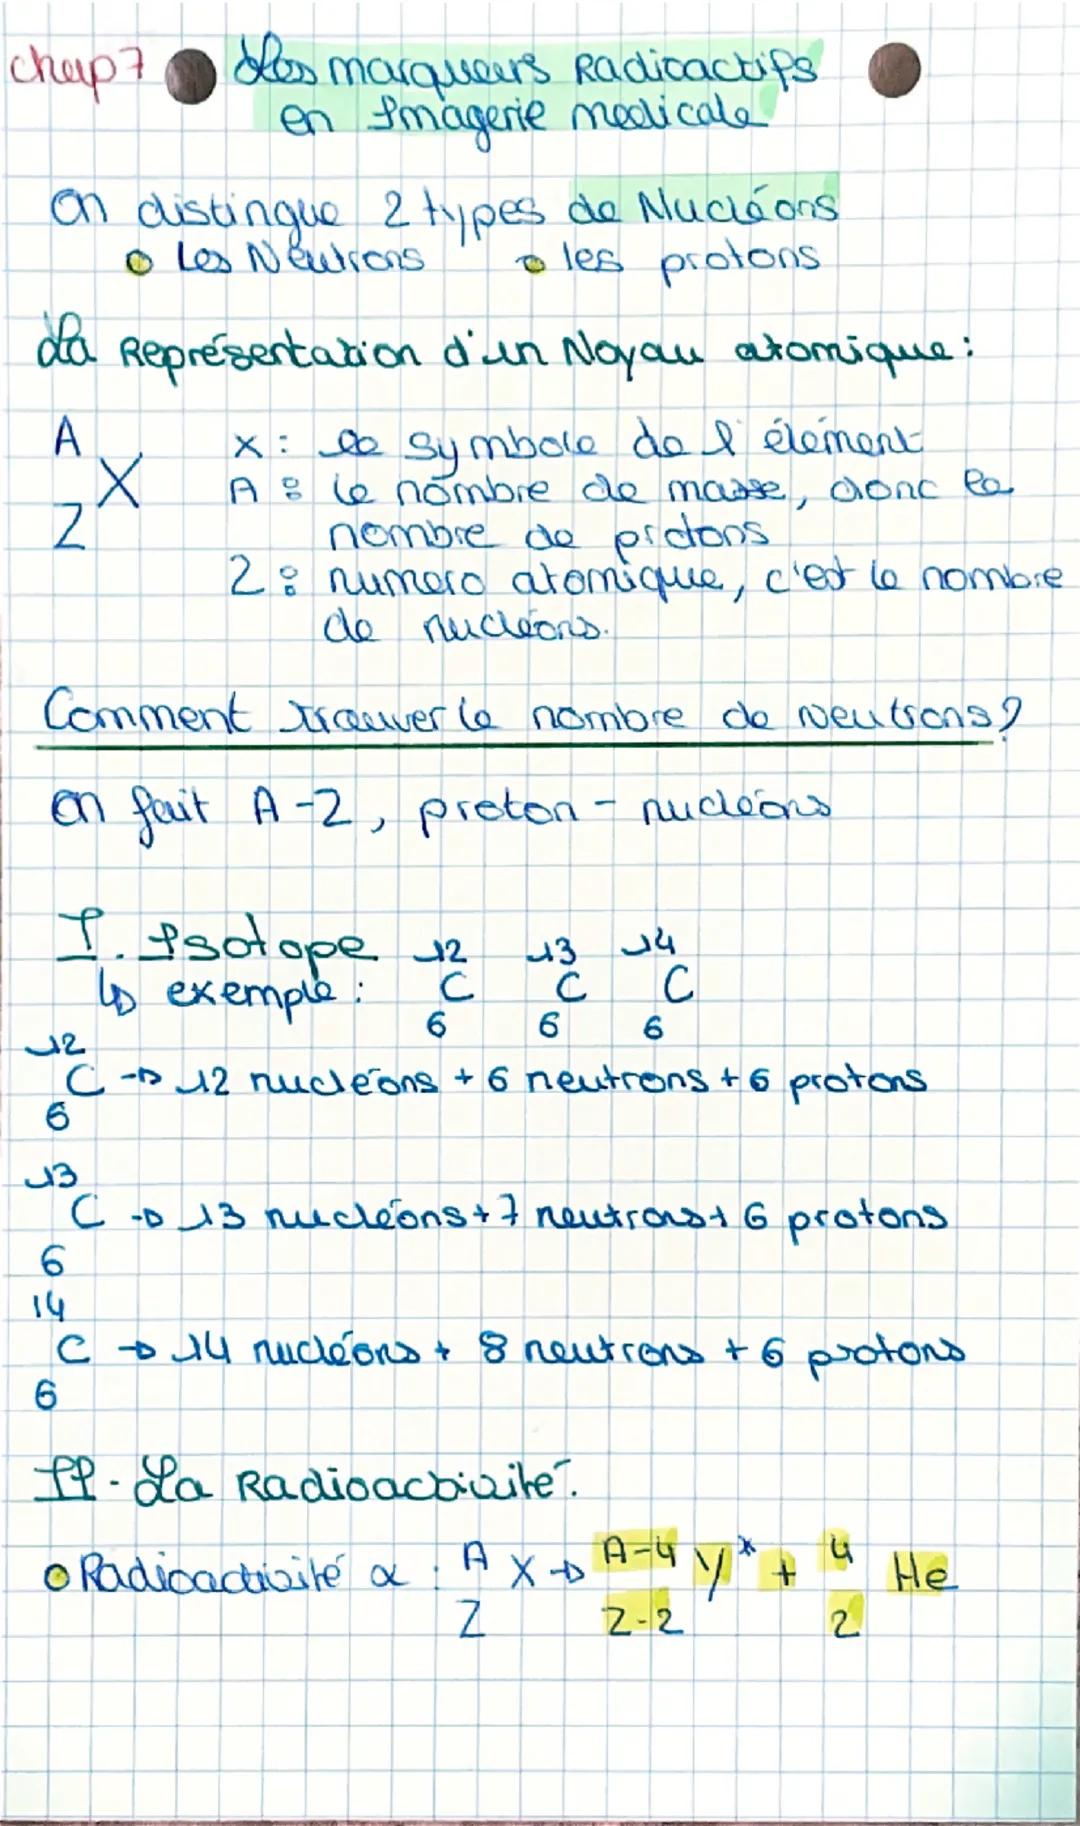 chap 7 Les marqueurs Radioactifs
en Imagerie medicale
On distingue 2 types de Nucléons
Les Neutrons les protons
La Représentation d'un Noyau atomique :
A
X
Z
X : le symbole de l'élément
A : le nombre de masse, donc le
nombre de protons
Z : numero atomique, c'est le nombre
de nucléons.
Comment trouver le nombre de neutrons ?
On fait A-Z, proton - nucléons
I. Isotope 12 13 14
↳ exemple : C C C
6 6 6
12
C → 12 nucléons + 6 neutrons + 6 protons
6
13
C → 13 nucléons + 7 neutrons + 6 protons
6
14
C → 14 nucléons + 8 neutrons + 6 protons
6
II - La Radioactivité.
Radioactivité α : A X → A-4 Y* + 4 He
Z Z-2 2